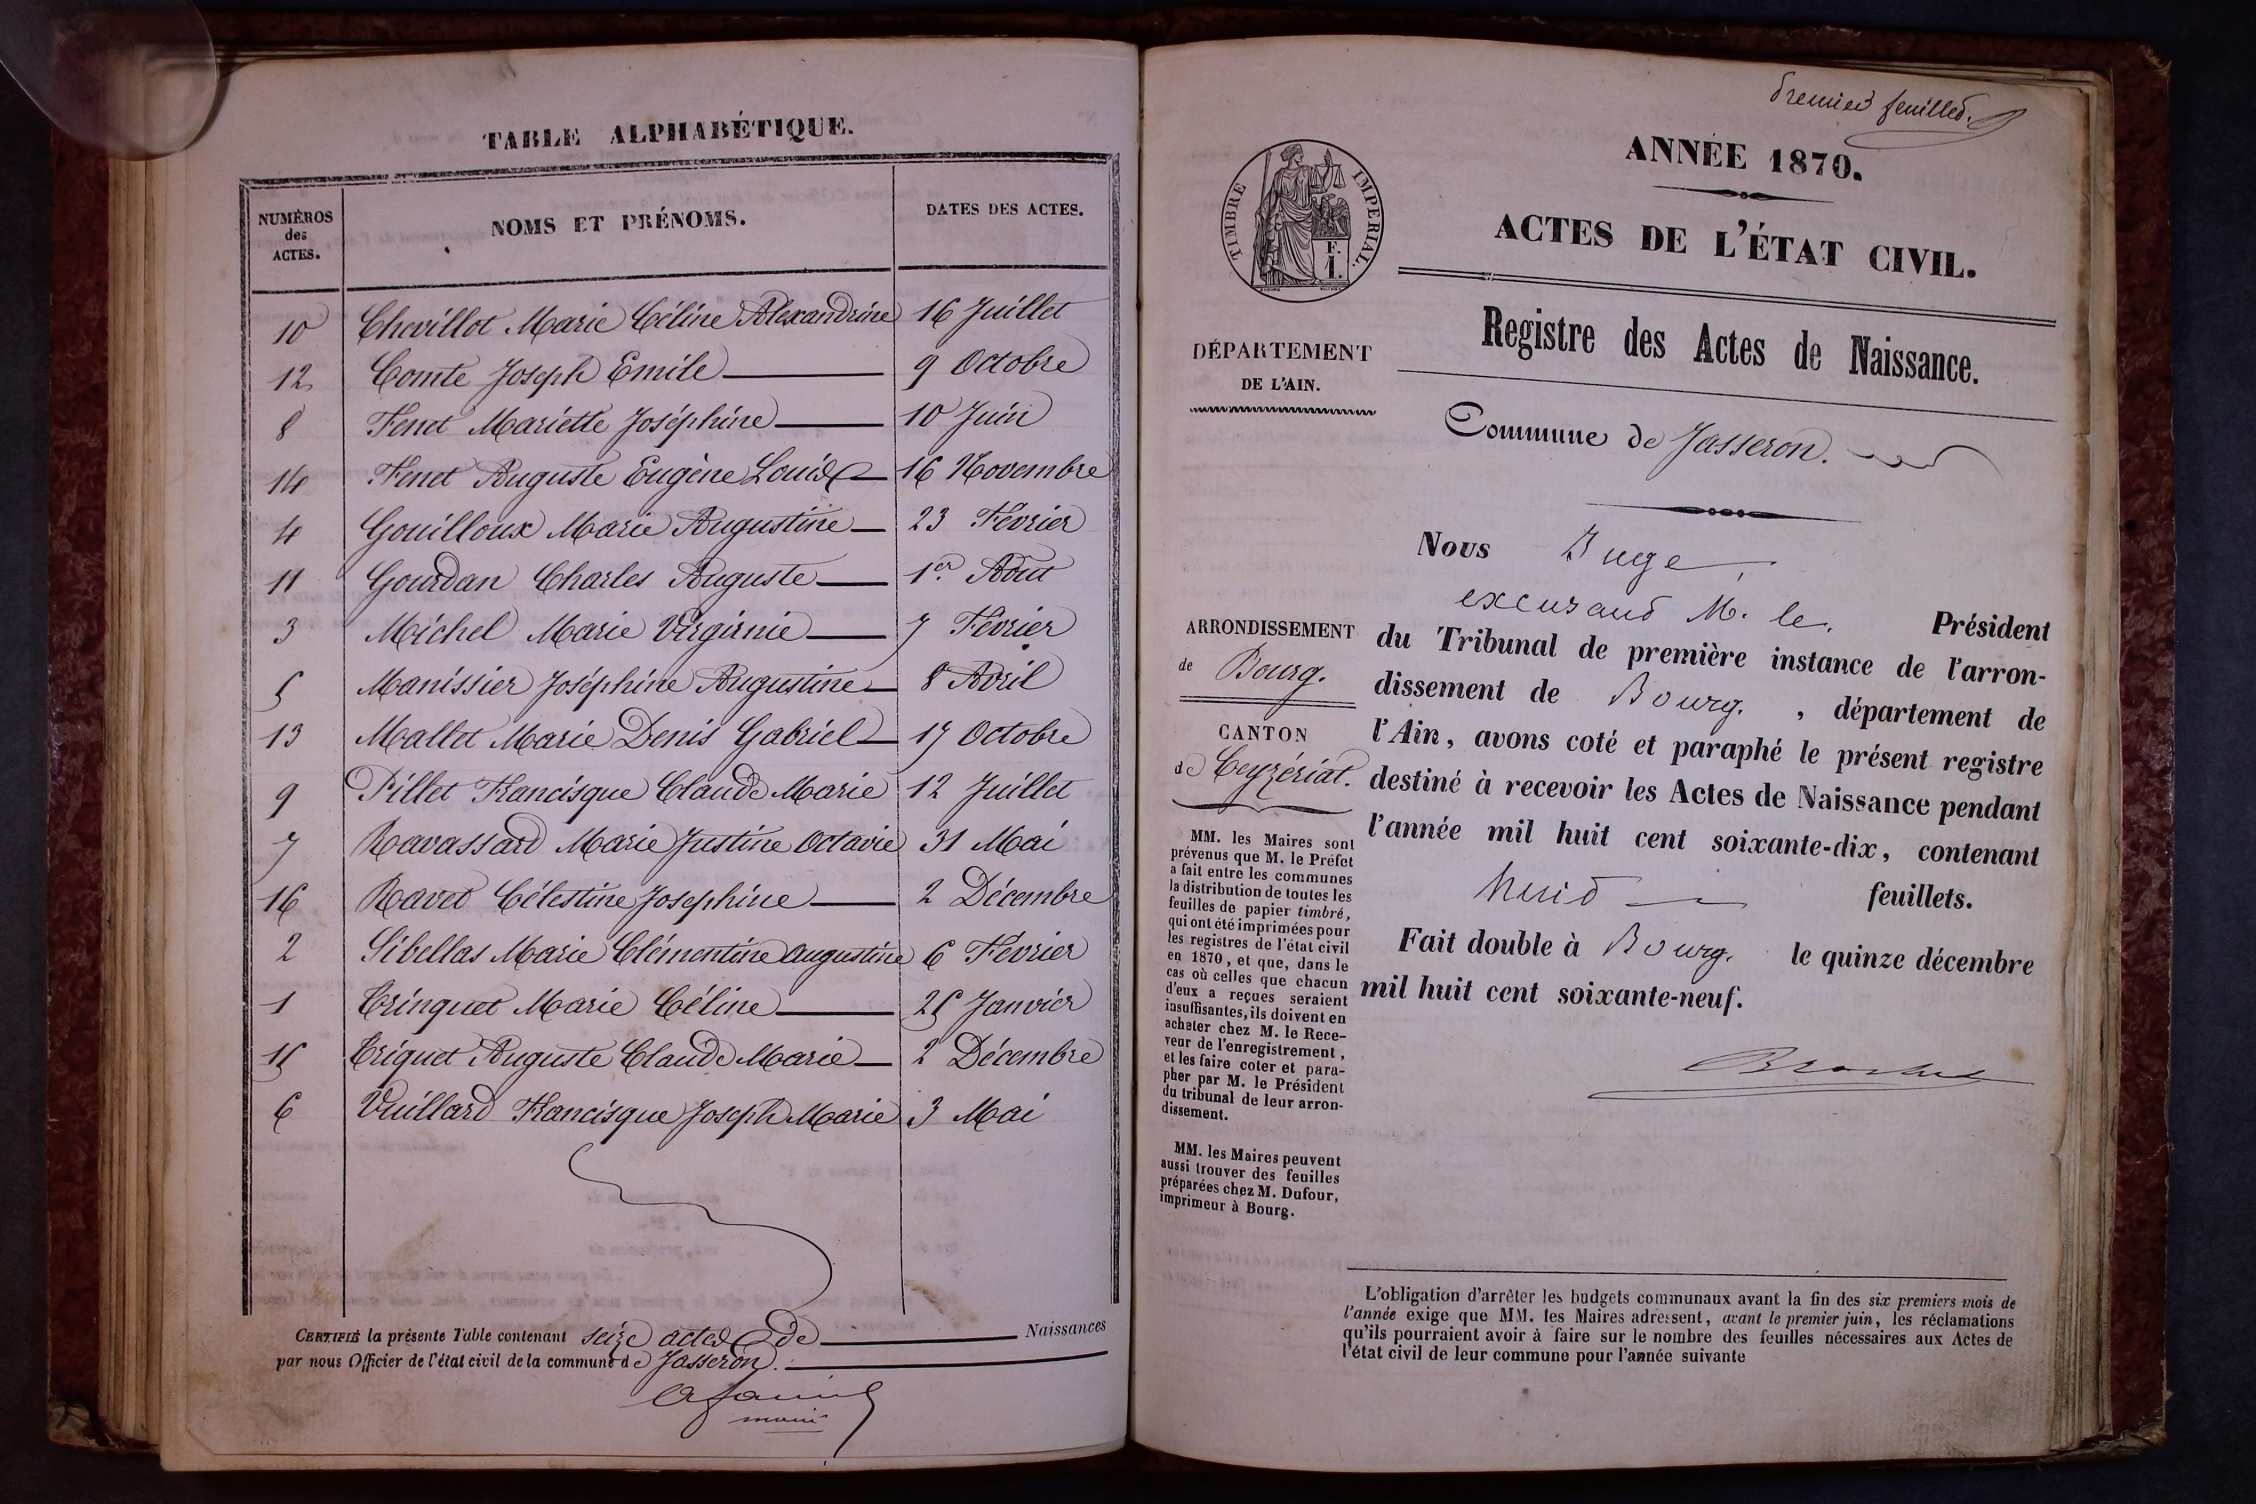 TABLE ALPHABÉTIQUE.
NUMÉROS des ACTES.
NOMS ET PRÉNOMS.
DATES DES ACTES.
10 Chevillot Marie Céline Alexandrine 16 Juillet
12 Comte Joseph Emile 9 Octobre
8 Fenet Mariette Joséphine 10 Juin
14 Fenet Auguste Eugène Louis 16 Novembre
4 Gouilloux Marie Augustine 23 Février
11 Gourdan Charles Auguste 1er Août
3 Michel Marie Virginie 7 Février
5 Manissier Joséphine Augustine 8 Avril
13 Mallet Marie Denis Gabriel 17 Octobre
9 Pillet Francisque Claude Marie 12 Juillet
7 Ravassard Marie Justine Octavie 31 Mai
16 Ravet Célestine Josephine 2 Décembre
2 Sibellas Marie Clémentine augustine 6 Février
1 Trinquet Marie Céline 25 Janvier
15 Triquet Auguste Claude Marie 2 Décembre
6 Vuillard Francisque Joseph Marie 3 Mai
CERTIFIÉ la présente Table contenant seize actes de Naissances
par nous Officier de l'état civil de la commune de Jasseron.
Premier feuillet.
ANNÉE 1870.
ACTES DE L'ÉTAT CIVIL.
TIMBRE IMPERIAL.
E.
I.
Registre des Actes de Naissance.
DÉPARTEMENT
DE L'AIN.
Commune de Jasseron.
Nous Juge,
excusant M. le. Président
du Tribunal de première instance de l'arron-
dissement de Bourg. , département de
l'Ain, avons coté et paraphé le présent registre
destiné à recevoir les Actes de Naissance pendant
l'année mil huit cent soixante-dix, contenant
huit feuillets.
Fait double à Bourg. le quinze décembre
mil huit cent soixante-neuf.
ARRONDISSEMENT
de Bourg.
CANTON
de Ceyzériat.
MM. les Maires sont
prévenus que M. le Préfet
a fait entre les communes
la distribution de toutes les
feuilles de papier timbré,
qui ont été imprimées pour
les registres de l'état civil
en 1870, et que, dans le
cas où celles que chacun
d'eux a reçues seraient
insuffisantes, ils doivent en
acheter chez M. le Rece-
veur de l'enregistrement,
et les faire coter et para-
pher par M. le Président
du tribunal de leur arron-
dissement.
MM. les Maires peuvent
aussi trouver des feuilles
préparées chez M. Dufour,
imprimeur à Bourg.
L'obligation d'arrêter les budgets communaux avant la fin des six premiers mois de
l'année exige que MM. les Maires adressent, avant le premier juin, les réclamations
qu'ils pourraient avoir à faire sur le nombre des feuilles nécessaires aux Actes de
l'état civil de leur commune pour l'année suivante